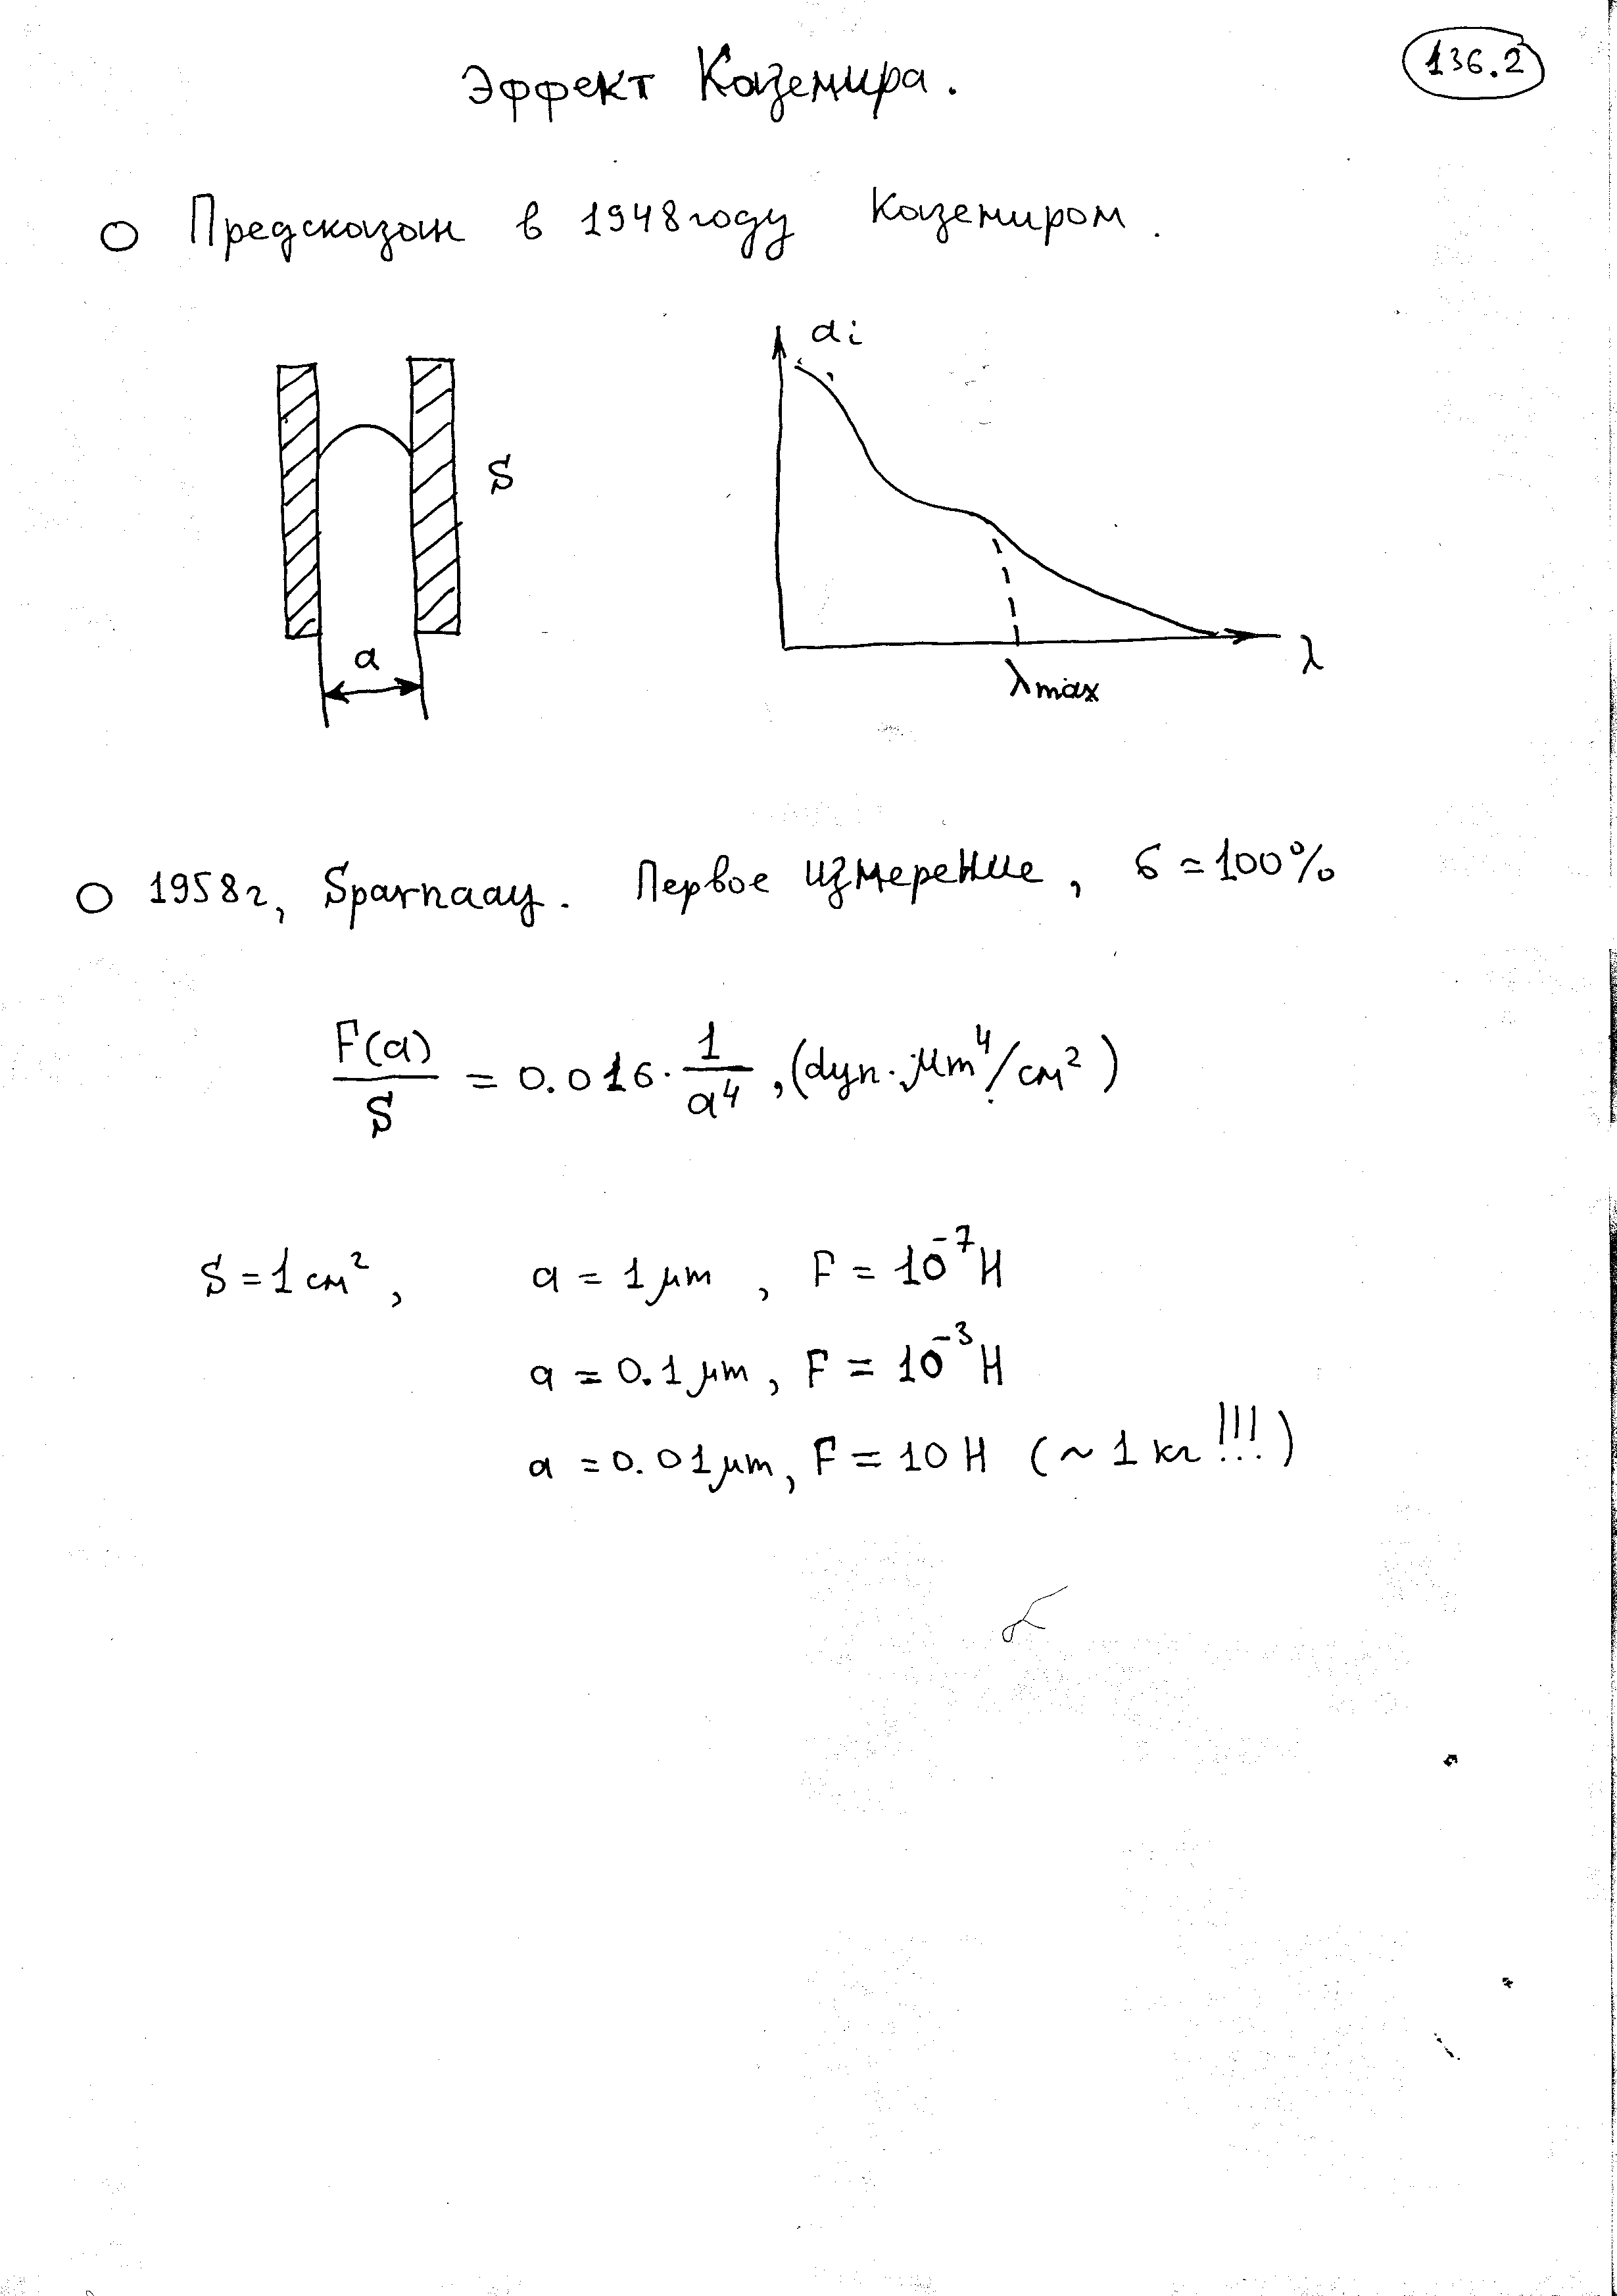 136.2
Эффект Каземира.
Предсказан в 1948 году Каземиром.
S
a
ai
λ
λmax
1958г, Sparnaay. Первое измерение, б = 100%
F(a)/S = 0.016 · 1/a⁴, (dyn · μm⁴/см²)
S = 1 см², a = 1 μm, F = 10⁻⁷ Н
a = 0.1 μm, F = 10⁻³ Н
a = 0.01 μm, F = 10 Н (~ 1 кг !!!)